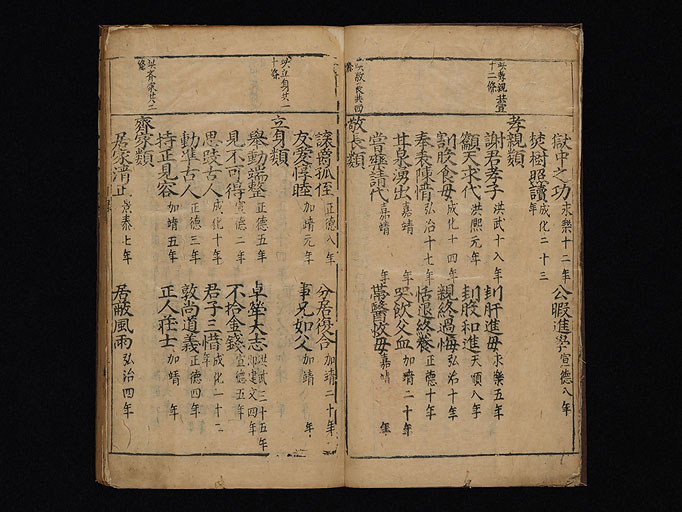 獄中之功 永樂十二年 公暇進學 宣德八年
焚樹照讀 成化二十三年
孝親類
謝君孝子 洪武十八年 刲肝進母 永樂五年
籲天求代 洪熙元年 刲股和進 天順八年
割股食母 成化十四年 親終過悔 弘治十年
奉表陳情 弘治十七年 恬退終養 正德十年
甘泉湧出 嘉靖 年 哭飲父血 加靖二十年
嘗藥請代 嘉靖 年 帶醫救母 嘉靖 年
敬長類
讓爵孤侄 正德八年 分居復合 加靖二十年
友愛惇睦 加靖元年 事兄如父 加靖 年
立身類
舉動端整 正德五年 卓犖大志 洪武三十五年即建文四年
見不可得 宣德二年 不拾金錢 宣德五年
思跂古人 成化十年 君子三惜 成化一十二年
動準古人 正德三年 敦尚道義 正德四年
持正見容 加靖五年 正人莊士 加靖 年
齊家類
居家清正 景泰七年 居敝風雨 弘治四年